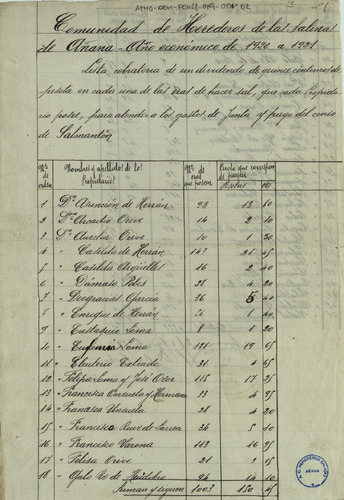 Comunidad de Herederos de las salinas
de Añana - Año económico de 1920 a 1921
Lista cobratoria de un dividendo de quince céntimos de
peseta en cada una de las eras de hacer sal, que cada Propieta
rio posee, para atender a los gastos de Junta y pago del censo
de Salmantón
Nº de orden Nombres y apellidos de los Propietarios Nº de eras que poseen Cuota que corresponde pagar Pesetas Cts
1 Dª Asunción de Herrán 13 10
2 Dn Arcadio Orive 14 2 10
3 Dª Aurelia Orive 10 1 50
4 " Casilda de Herrán 21 45
5 " Casilda Argüelles 16 2 40
6 " Dámaso Pobes 28 4 20
7 " Deogracias García 36 5 40
8 " Enrique de Herrán 1 40
9 " Eustaquio Loma 8 1 20
10 " Eufemia Loma 131 19 65
11 " Eleuterio Estrada 31 4 65
12 " Felipa Loma y José 115 17 25
13 " Francisca y Hermana 33 4 95
14 " Francisca 28 4 20
15 " Francisca Ruiz de 34 5 10
16 " Francisco Varona 113 16 95
17 " Felisa Orive 21 3 15
18 " 94 14 10
Suman y siguen 1003 150 45